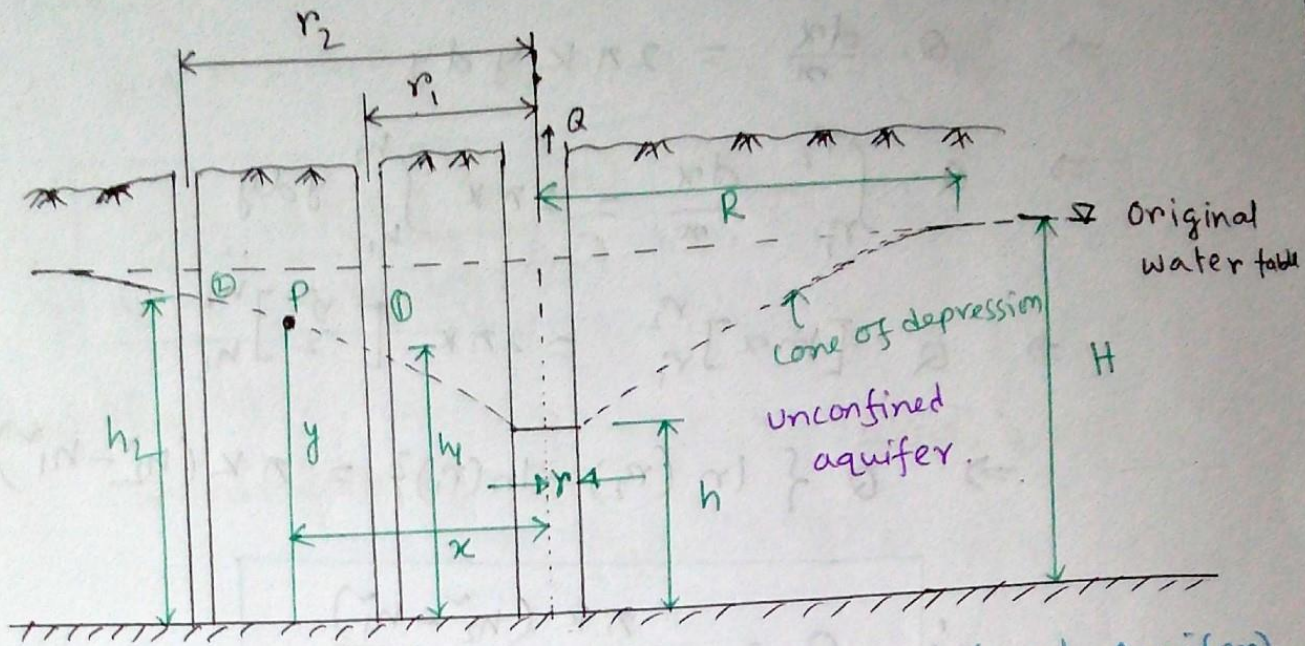 r2
r1
Q
R
Original
water table
②
P
①
cone of depression
H
unconfined
aquifer.
h2
y
h1
r
h
x